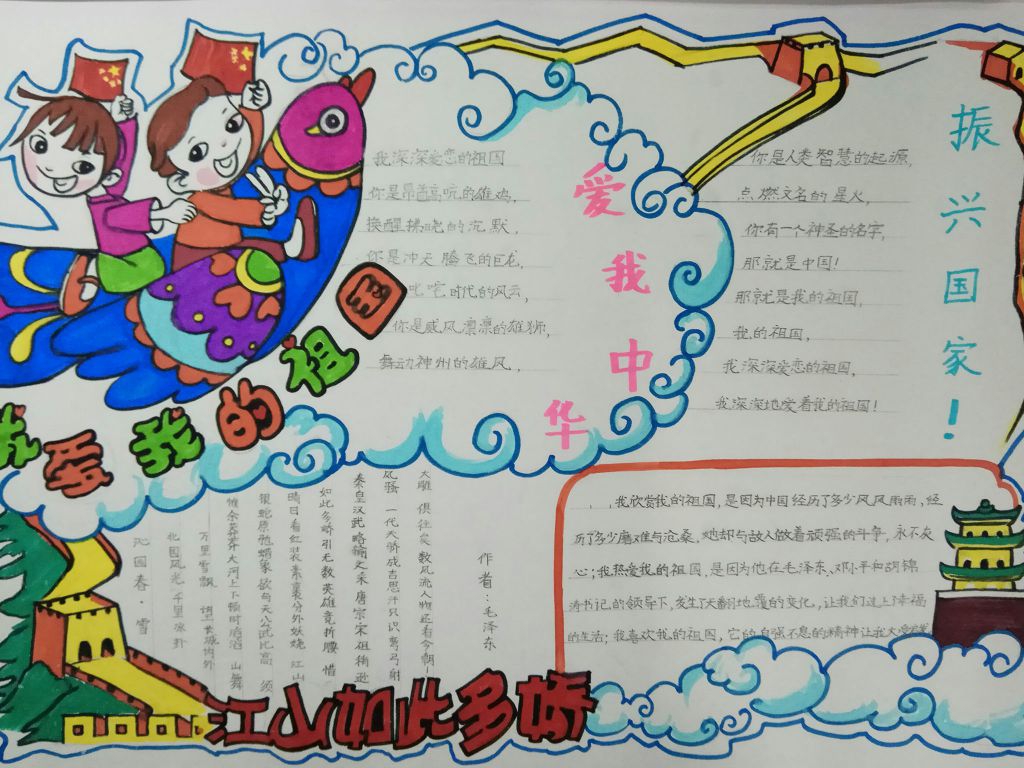 我爱我的祖国
我深深爱恋的祖国
你是昂首高吭的雄鸡,
换醒拂晓的沉默,
你是冲天腾飞的巨龙,
叱咤时代的风云,
你是威风凛凛的雄狮,
舞动神州的雄风,
爱我中华
你是人类智慧的起源,
点燃文名的星火,
你有一个神圣的名字,
那就是中国!
那就是我的祖国,
我的祖国,
我深深爱恋的祖国,
我深深地爱着我的祖国!
振兴国家!
沁园春·雪
北国风光 千里冰封
万里雪飘 望长城内外
惟余莽莽 大河上下 顿时滔滔 山舞
银蛇 原驰蜡象 欲与天公试比高 须
晴日 看红装素裹 分外妖娆 江山
如此多娇 引无数英雄竞折腰 惜
秦皇汉武 略输文采 唐宗宋祖 稍逊
风骚 一代天骄 成吉思汗 只识弯弓射
大雕 俱往矣 数风流人物 还看今朝
作者:毛泽东
江山如此多娇
我欣赏我的祖国,是因为中国经历了多少风风雨雨,经
历了多少磨难与沧桑,她却与敌人做着顽强的斗争,永不灰
心;我热爱我的祖国,是因为他在毛泽东、邓小平和胡锦
涛书记的领导下,发生了天翻地覆的变化,让我们过上幸福
的生活;我喜欢我的祖国,它的自强不息的精神让我大受